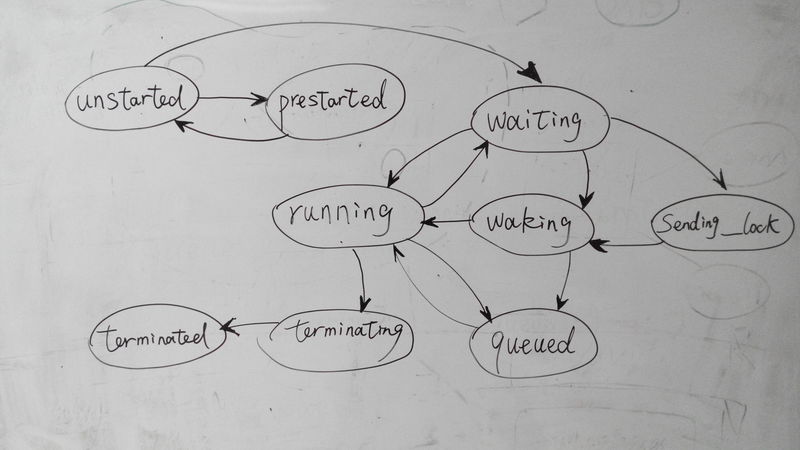 unstarted
prestarted
waiting
running
waking
Sending_lock
terminated
terminating
queued